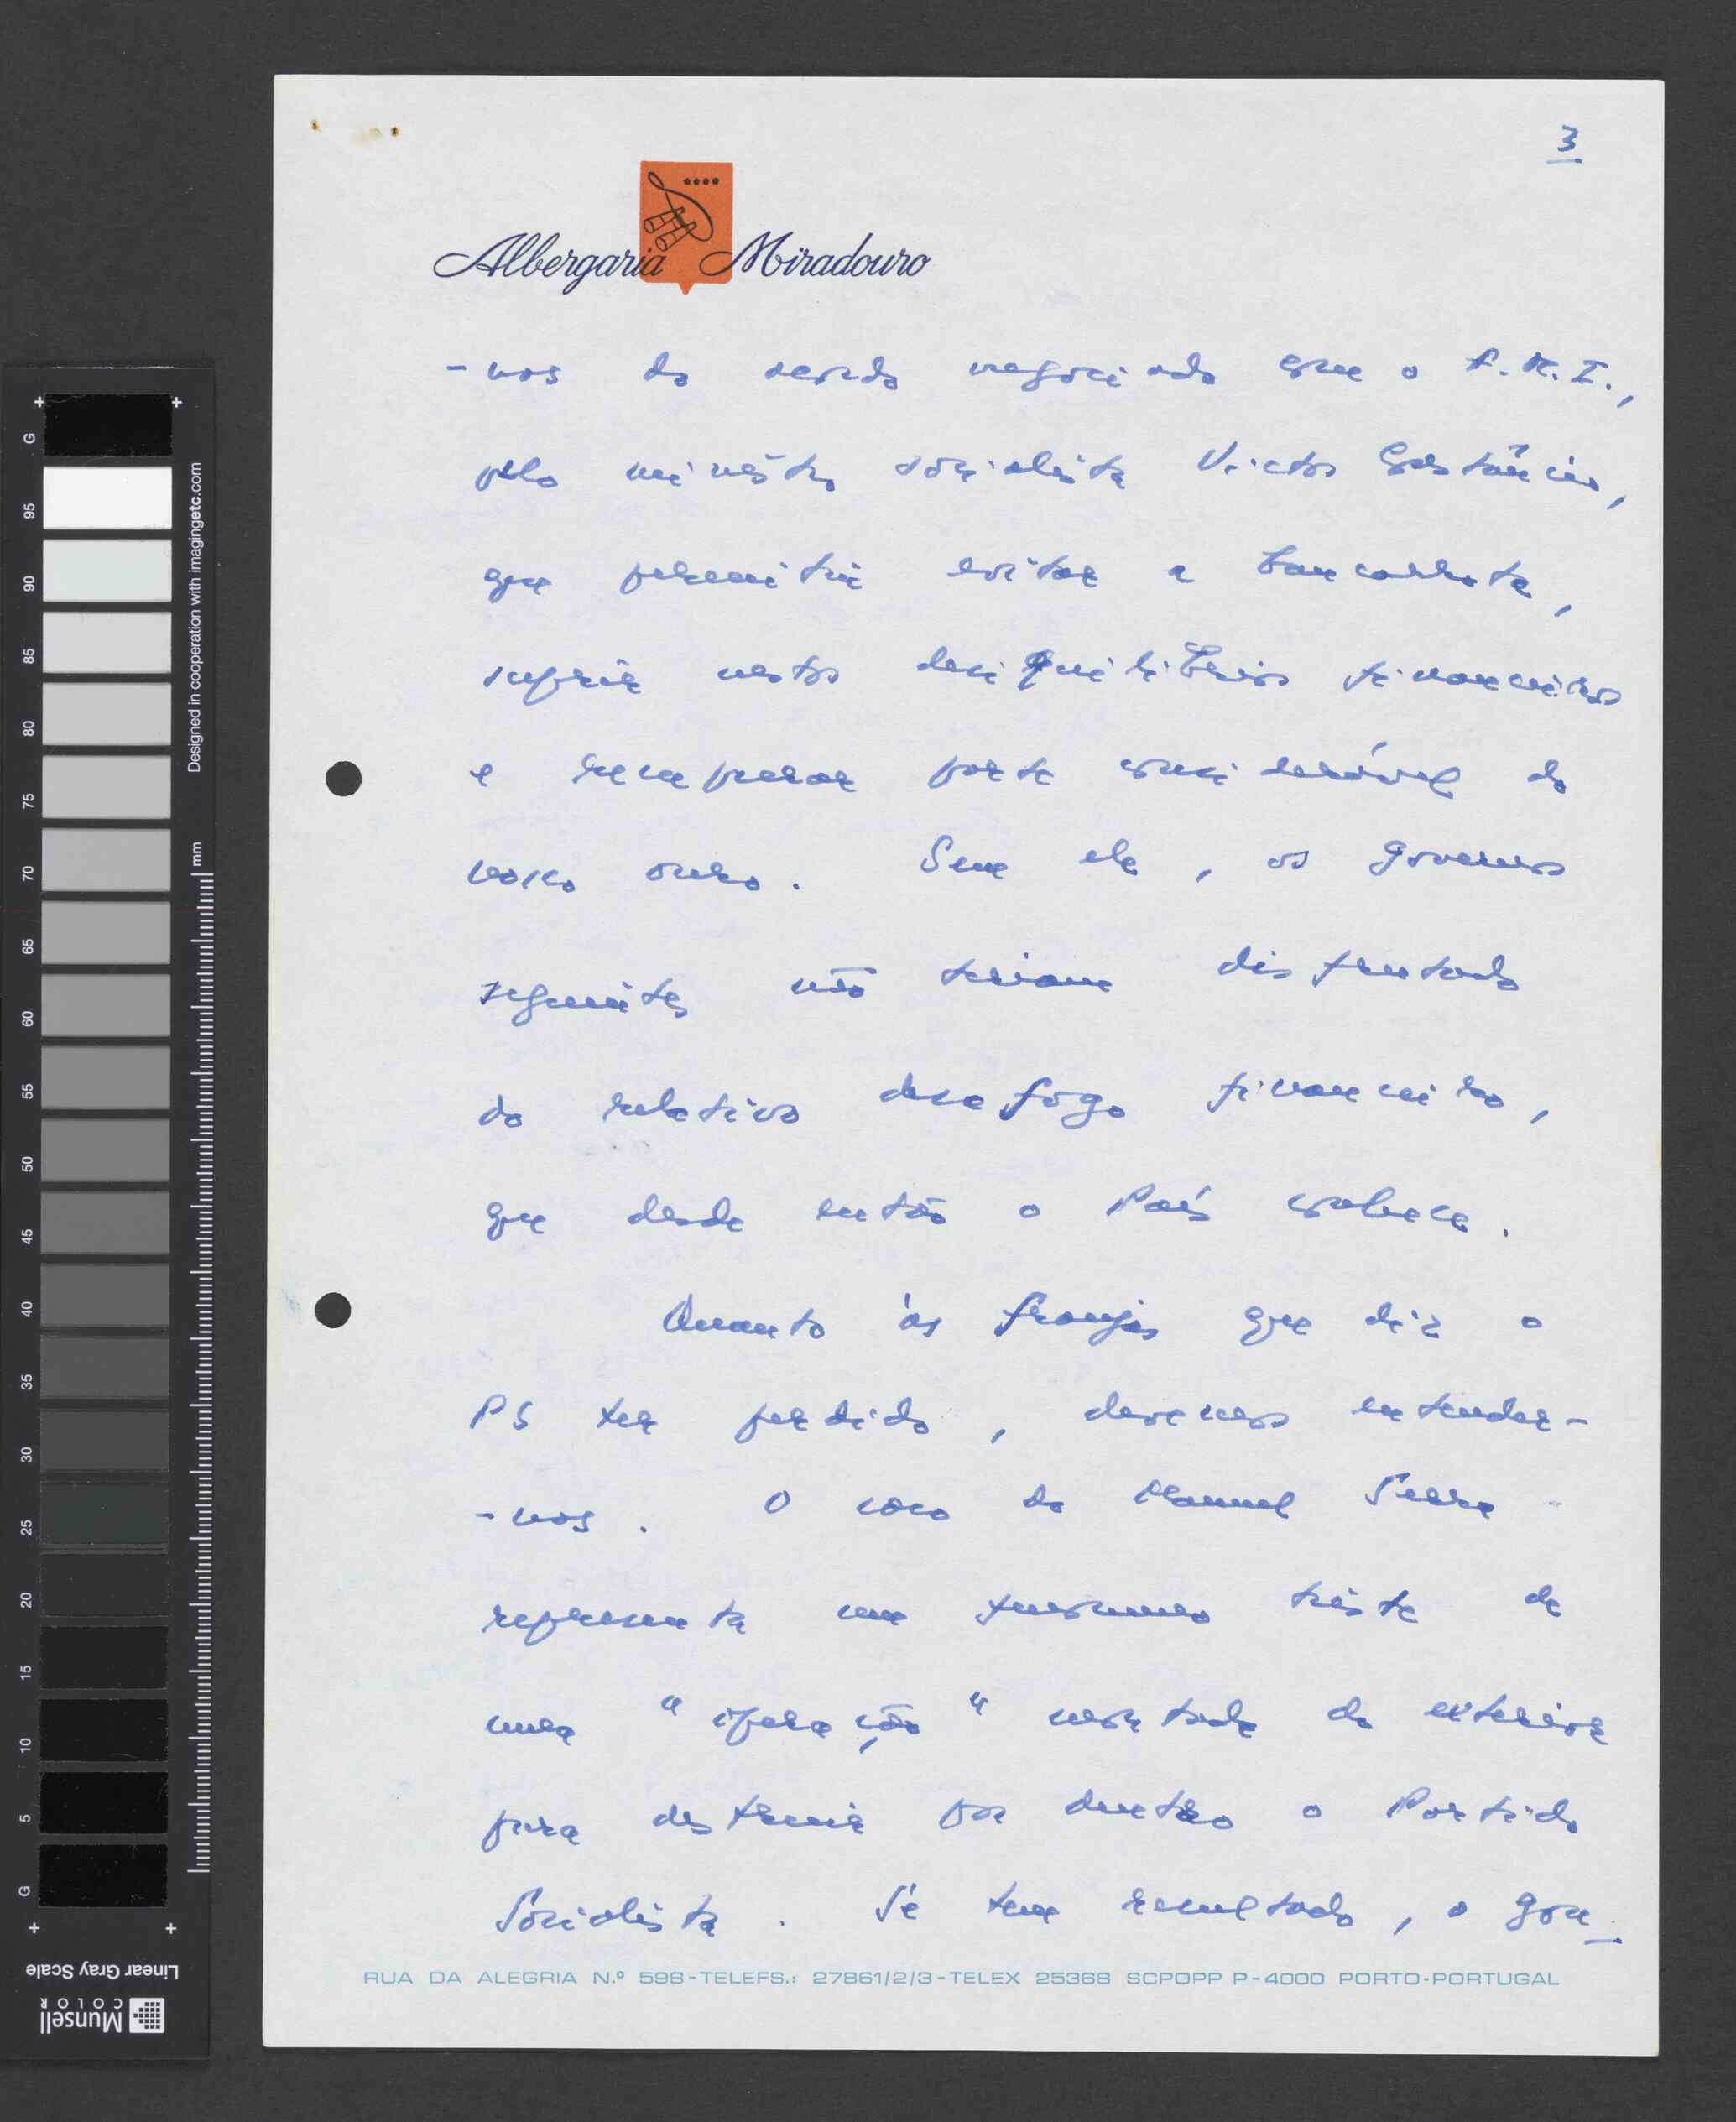 3
Albergaria Miradouro
-nos do acordo negociado com o F.M.I.,
pelo ministro socialista Victor Constâncio,
que permitiu evitar a bancarrota,
suprir vastos desiquilibrios financeiros
e recuperar parte considerável do
nosso ouro. Sem ele, os governos
seguintes não teriam disfrutado
do relativo desafogo financeiro,
que desde então o País conhece.
Quanto às franjas que diz o
PS ter perdido, devemos entender-
-nos. O caso do Manuel Serra
representa um fenómeno triste de
uma "operação" montada do exterior
para destruir por dentro o Partido
Socialista. Se tem resultado, o gon-
RUA DA ALEGRIA N.º 598-TELEFS.: 27861/2/3-TELEX 25368 SCPOPP P-4000 PORTO-PORTUGAL
+ +
G
95
90
85
80
75
70
65
60
55
50
45
40
35
30
25
20
15
10
5
G
+ +
Designed in cooperation with imagingetc.com
mm
Linear Gray Scale
Munsell
COLOR